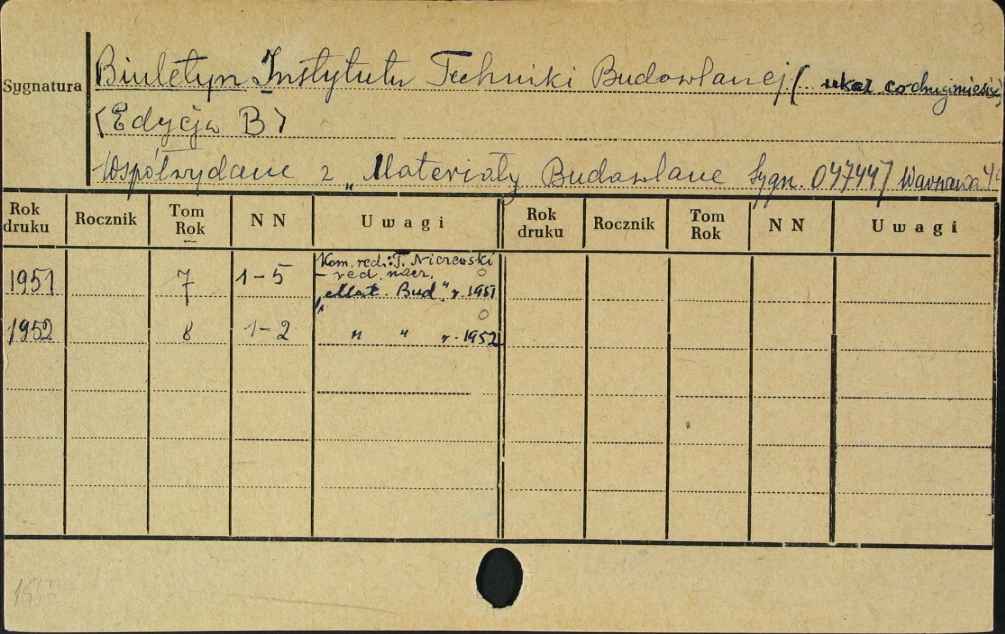 Sygnatura
Biuletyn Instytutu Techniki Budowlanej (ukaz. co drugi miesiąc)
<Edycja B>
Współwydane z „Materiały Budowlane Sygn. 04744/ Warszawa
Rok druku Rocznik Tom Rok N N Uwagi Rok druku Rocznik Tom Rok N N Uwagi
Kom. red.: T. Niczewski
1951 7 1-5 – red. nacz.
„Mat. Bud." r. 1951
1952 8 1-2 " " r. 1952